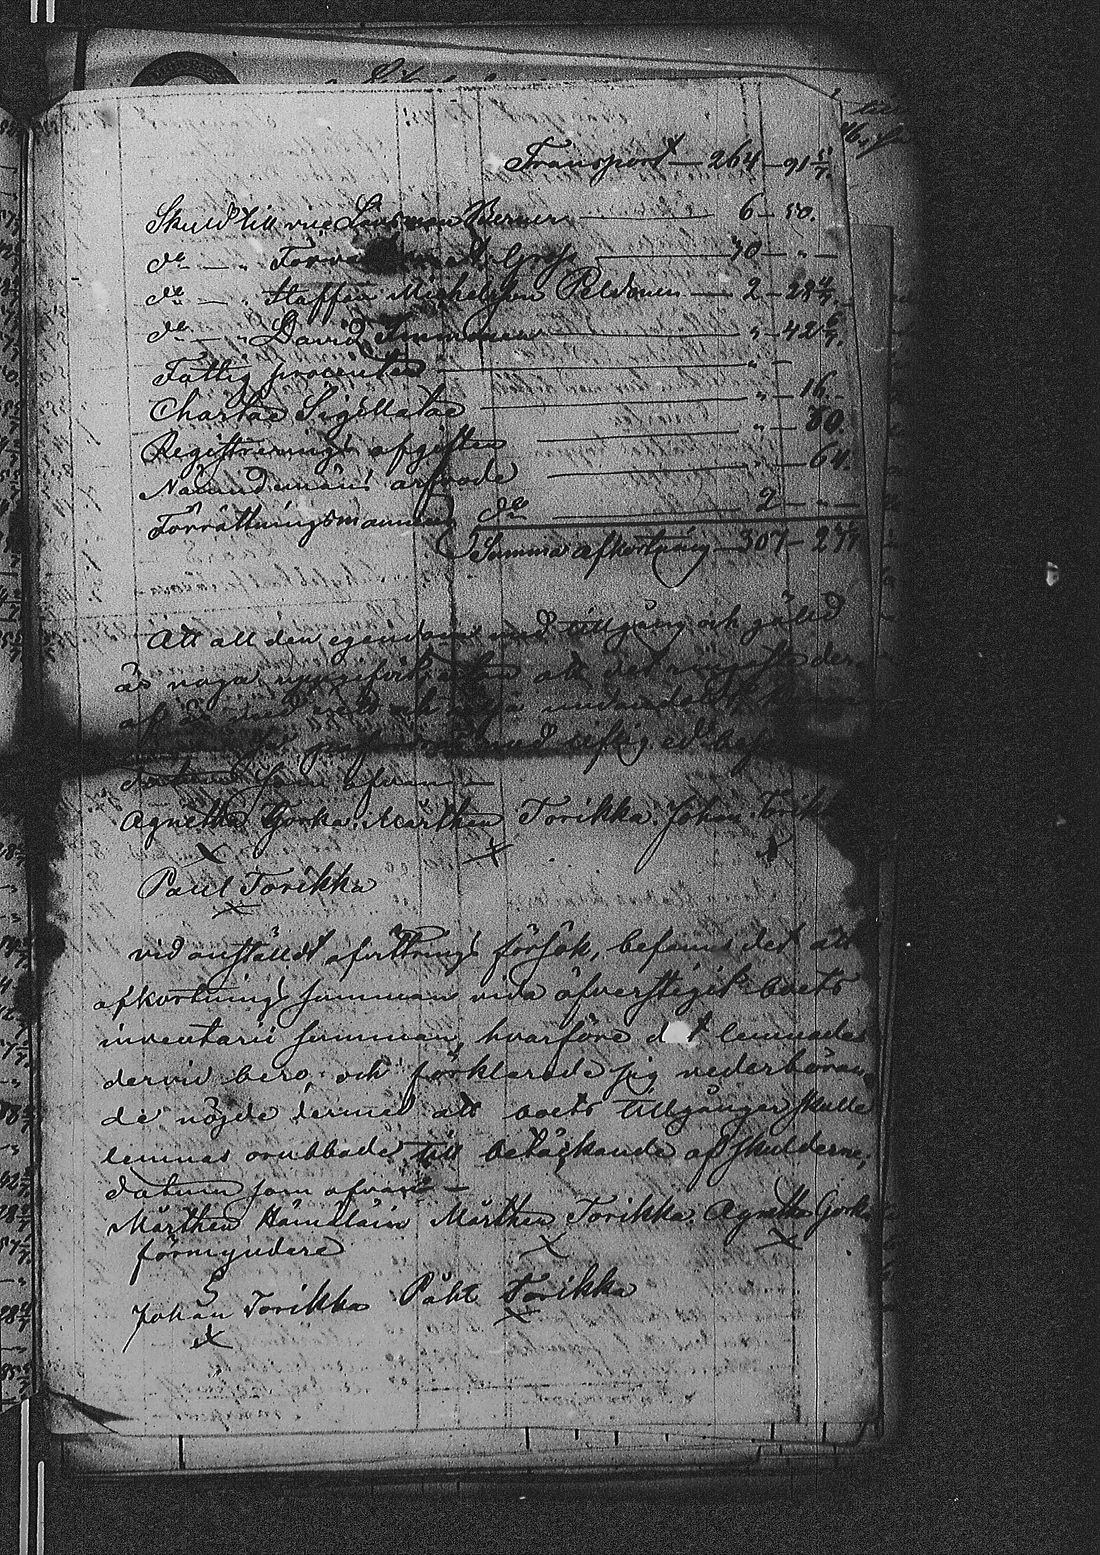 Transport — 264 — 91 11/7.
Skuld till vice Länsman Berner — 6 — 50.
do — " — 10 — " —
do — " Staffan Michelsson Peldonen — 2 — 28 4/7.
do — " David Immonen — " — 42 6/7.
Fattig procenten — " — "
Chartae Sigillatae — " — 16.
Registrerings afgiften — " — 80.
Nämndemäns arfvode — " — 64.
Förrättningsmannens do — 2 — " —
Summa afkortning — 307 —
Att all den egendom med tillgång och gäld
är noga uppgifvit, utan att det ringaste der-
af är med vett och vilja undandöldt
med liflig ed
datum som ofvan —
Agnetha Gorka. Mårthen Torikka. Johan Torikka
X X X
Paul Torikka
X
vid anstäldt afvittrings försök, befanns det att
afkortnings summan vida öfverstigit boets
inventarii summan, hvarföre det lemnades
dervid bero, och förklarade sig vederböran-
de nöjde dermed att boets tillgångar skulle
lemnas orubbade till betäckande af skulderne,
datum som ofvan —
Mårthen Hämäläin Mårthen Torikka. Agnetha Gorka
förmyndare X X
Johan Torikka Påhl Torikka
X X